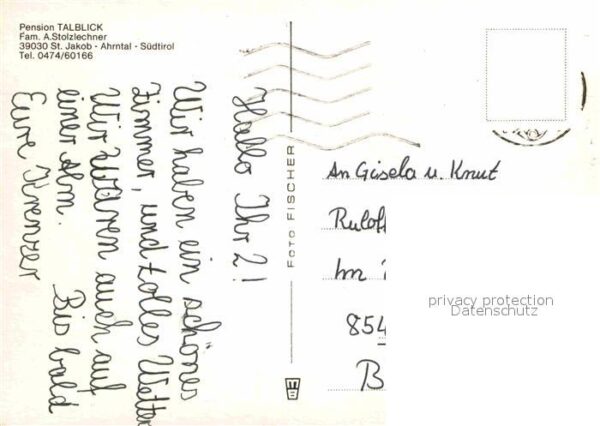 Pension TALBLICK
Fam. A.Stolzlechner
39030 St. Jakob - Ahrntal - Südtirol
Tel. 0474/60166
Hallo Ihr 2!
Wir haben ein schönes
Zimmer, und tolles Wetter
Wir waren auch auf
einer Alm. Bis bald
Eure
FOTO FISCHER
An Gisela u. Knut
Rulof
Im
854
B
privacy protection
Datenschutz